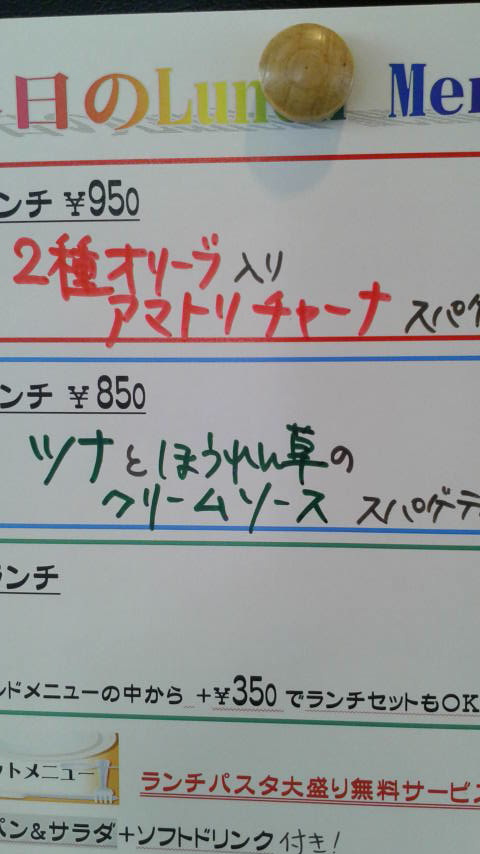 日のLunch Men
ンチ ¥950
2種オリーブ入り
アマトリチャーナ スパゲ
ンチ ¥850
ツナとほうれん草の
クリームソース スパゲテ
ランチ
ンドメニューの中から +¥350 でランチセットもOK
ットメニュー
ランチパスタ大盛り無料サービス
パン&サラダ+ソフトドリンク付き!